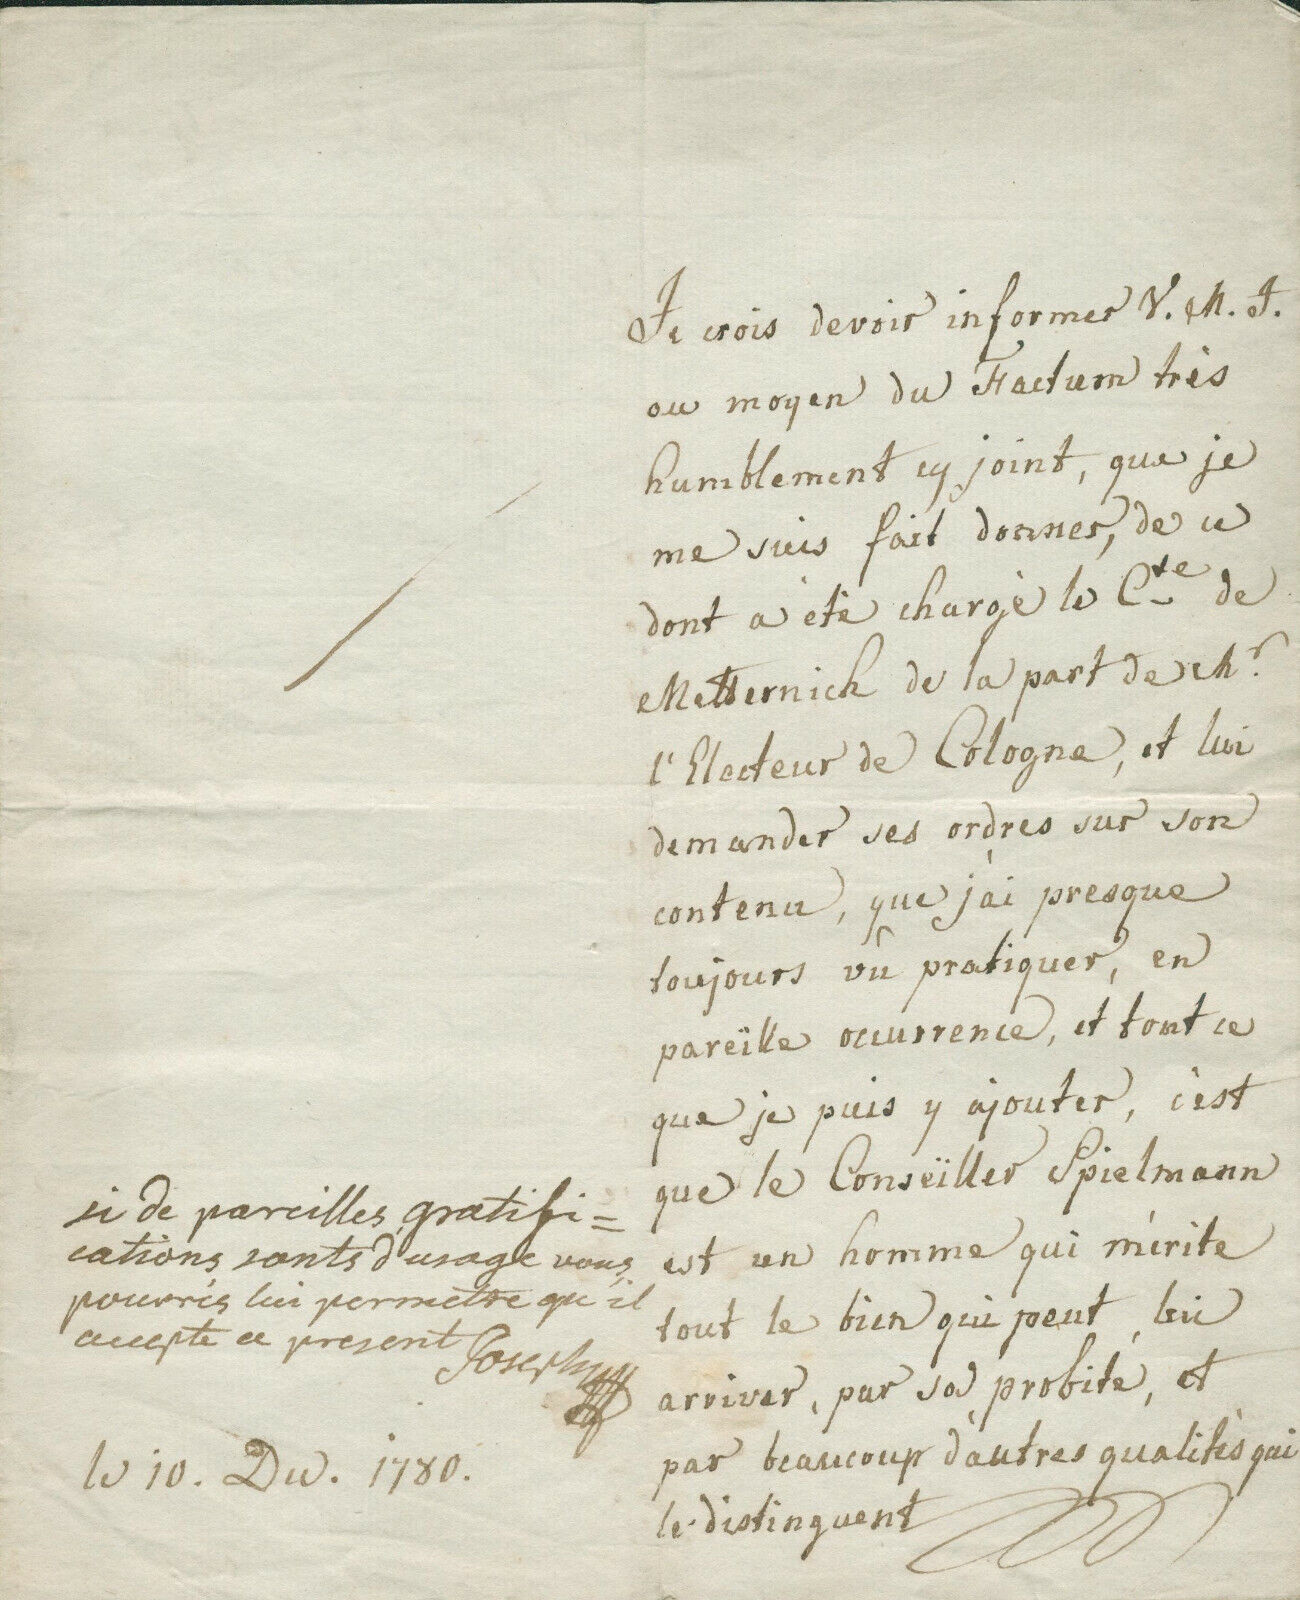 Je crois devoir informer V. M. I.
au moyen du Factum très
humblement cy joint, que je
me suis fait donner, de ce
dont a été chargé le Cte de
Metternich de la part de Mr.
l'Electeur de Cologne, et lui
demander ses ordres sur son
contenu, que j'ai presque
toujours vû pratiquer, en
pareïlle occurrence, et tout ce
que je puis y ajouter, c'est
que le Conseïller Spielmann
est un homme qui mérite
tout le bien qui peut lui
arriver, par sa probité, et
par beaucoup d'autres qualités qui
le distinguent
si de pareilles gratifi=
cations sonts d'usage vous
pouvrés lui permettre qu'il
accepte ce present
Joseph
le 10. Dec. 1780.